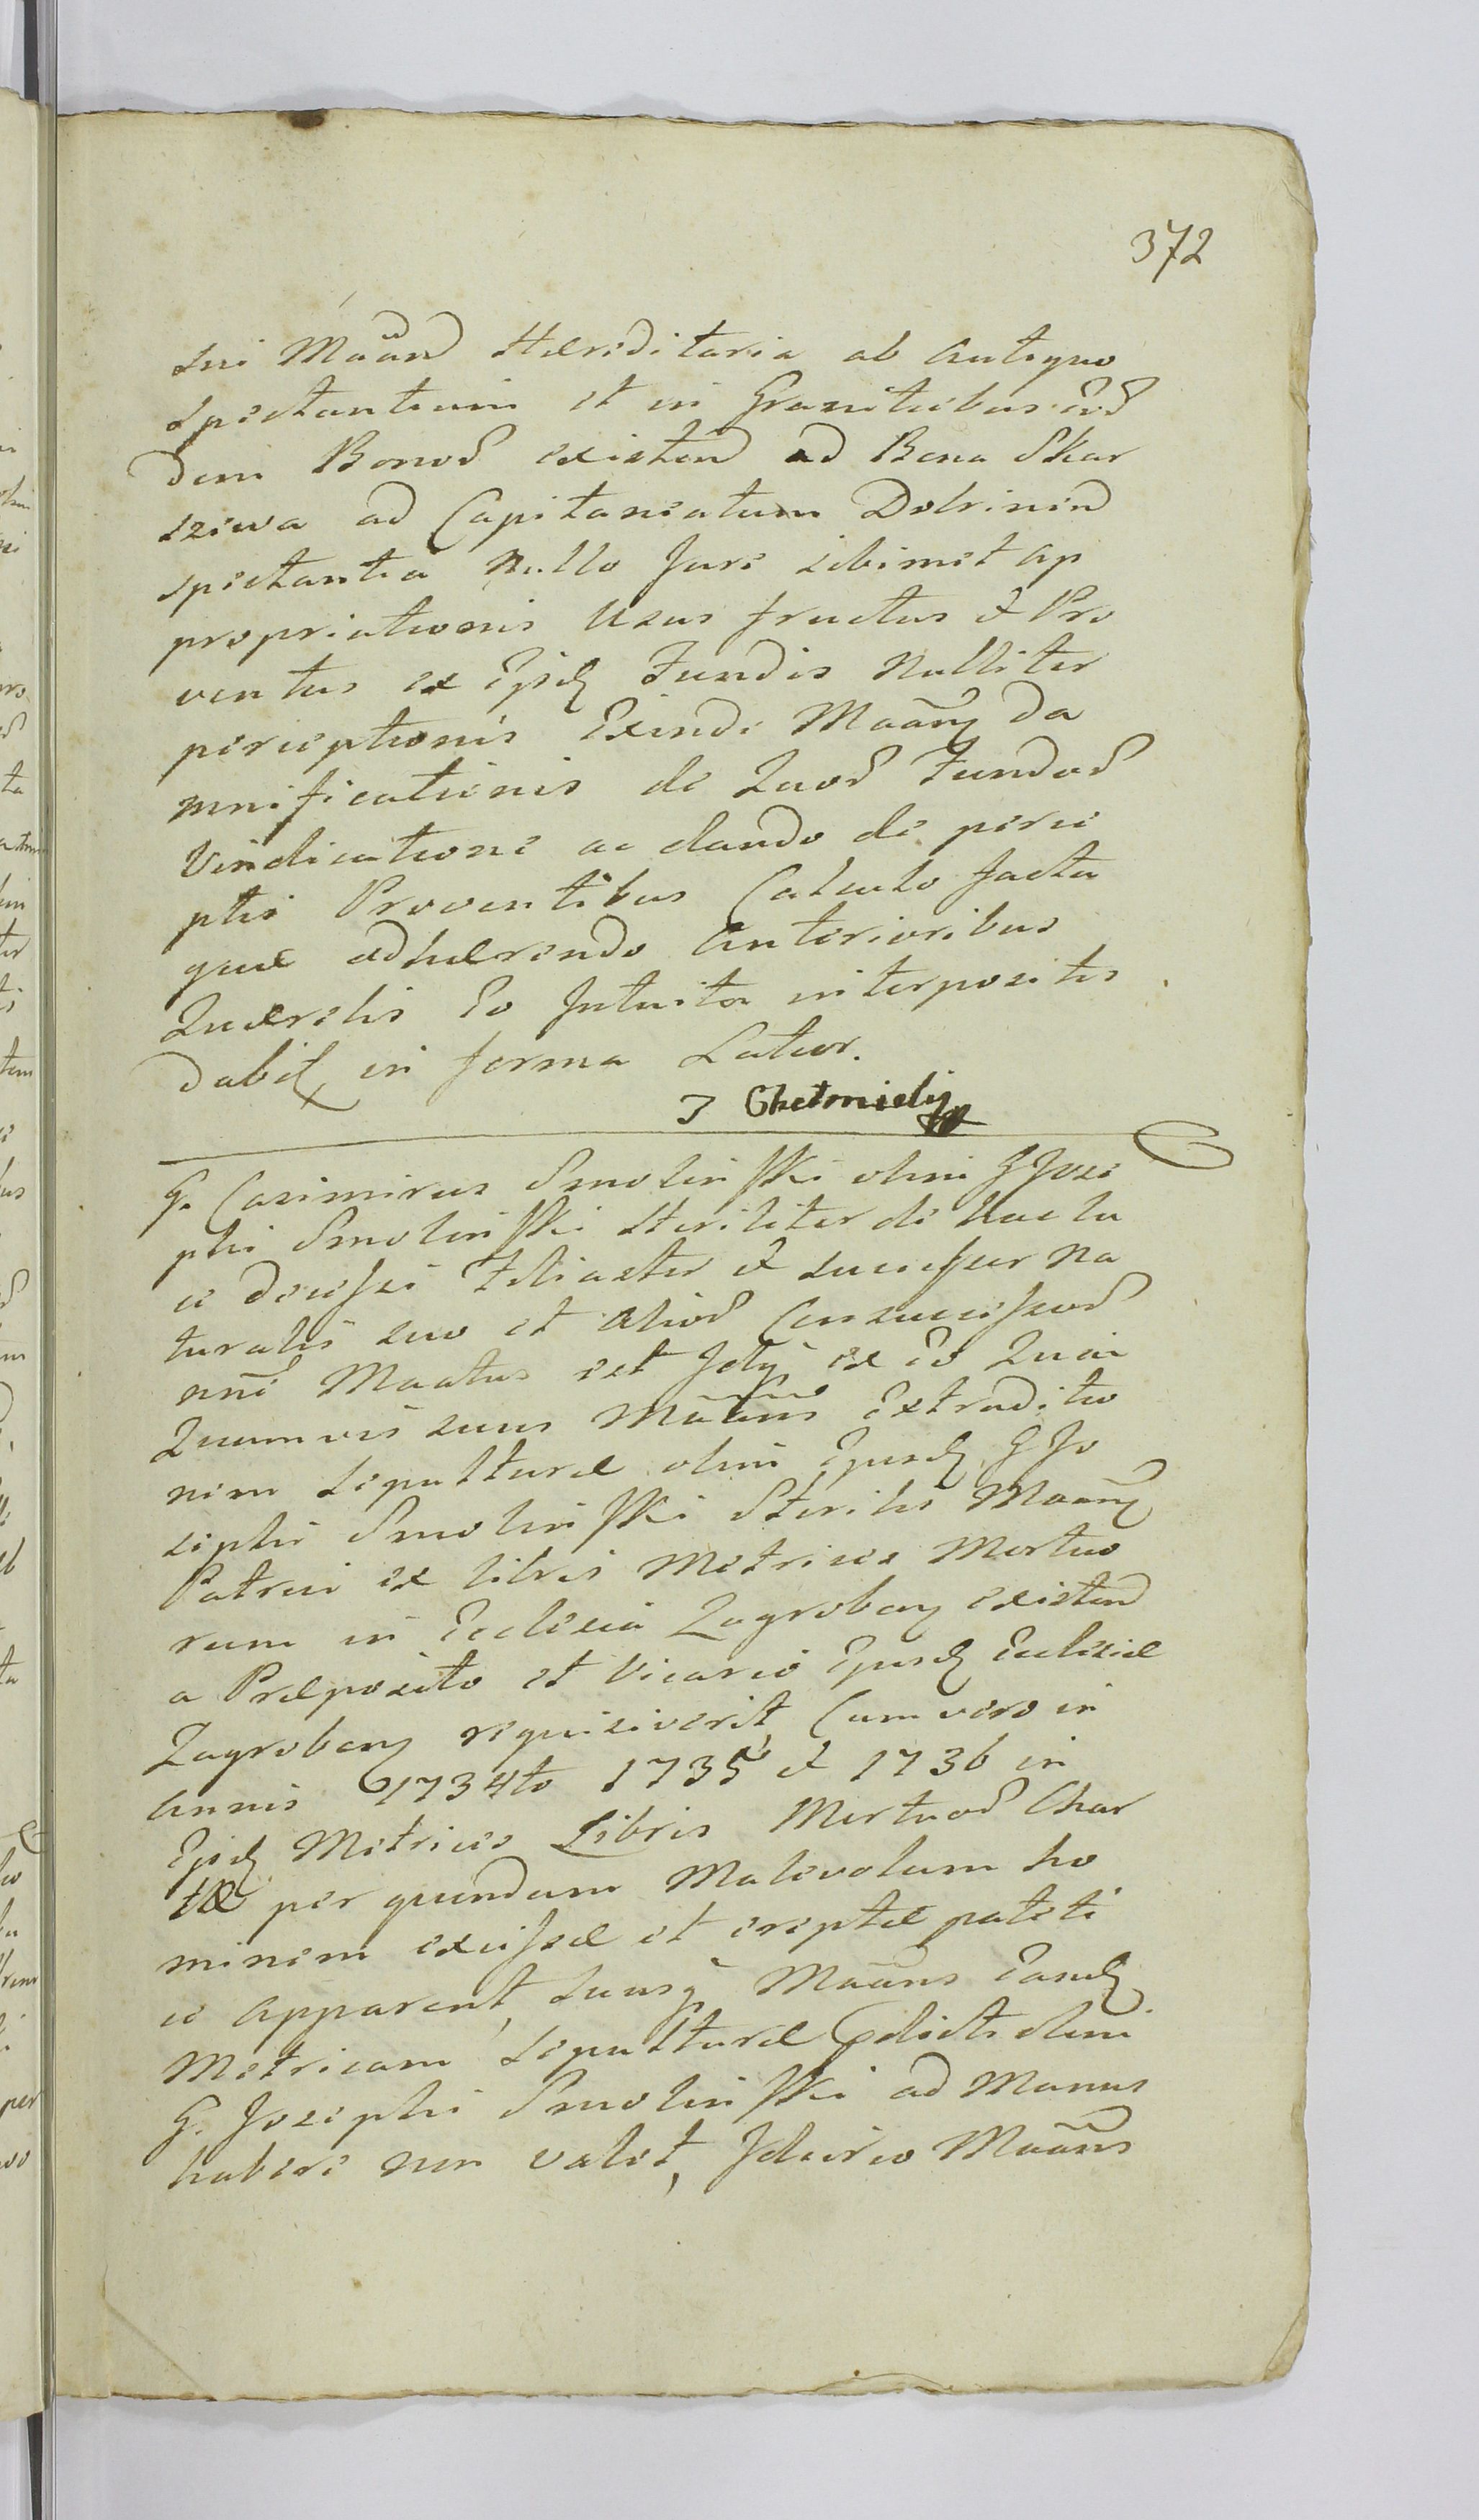 372
sui Maand Hæreditaria ab Antiquo
spectantium et in Granitiebus Eor
dem Bonor existend ad Bona Skar
sziwa ad Capitaneatum Dobrinen
spectantia nullo Jure sibimet ap
propriationis Usus fructus et Pro
ventus ex Ijsdem Fundis nulliter
perceptionis Exinde Maang da
mnificationis de Quor Fundor
Vindicatione ac dando de perce
ptis Proventibus Calculo facta
quæ adhærendo Anterioribus
Quærelis Eo Intuitu interpositis
dabit in forma Latior.
J Chełmicki
G. Casimirus Smolinski olim G Jose
phi Smolinski steriliter de hac lu
ce decessi Filiaster et successor na
turalis suo et alior Consuccessor
nne Maatus est Jdq ex Eo Quia
Quamvis suus Maans Extraditio
nem sepulturæ olim Ejusd G Jo
sephi Smolinski Sterilis Maang
Patrui ex libris Metrices Mortuo
rum in Ecclesia Zagroban existend
a Præposito et Vicario Ejusd Ecclesiæ
Zagroban requisiverit, Cum vero in
Annis 1734to 1735 et 1736 in
Ijsd Metrices Libris Mortuor Char
tæ per quendam Malevolum ho
minem excissæ et ereptæ patete
ce apparent, suusq Maans Eand
Metricam sepulturæ Pdicti olim
G. Josephi Smolinski ad Manus
habere non valet, Idcirco Maans